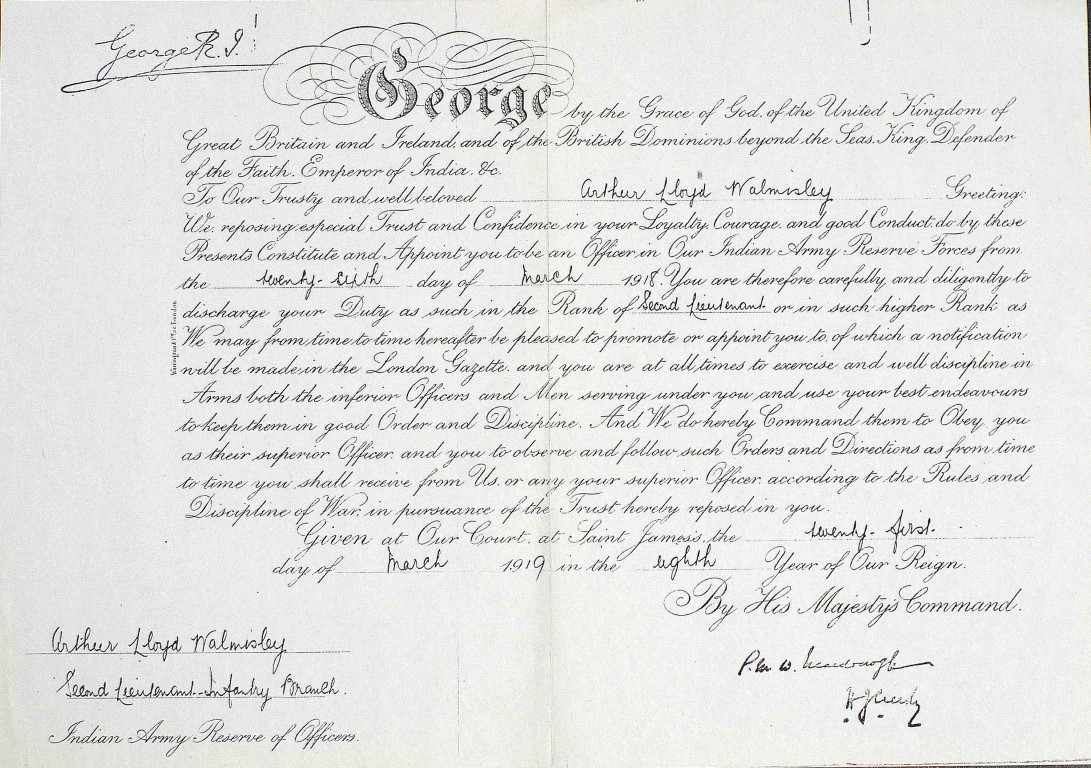 George R.I.
George by the Grace of God, of the United Kingdom of
Great Britain and Ireland, and of the British Dominions beyond the Seas, King, Defender
of the Faith, Emperor of India, &c.
To Our Trusty and well beloved Arthur Lloyd Walmisley Greeting:
We, reposing especial Trust and Confidence in your Loyalty, Courage, and good Conduct, do by these
Presents Constitute and Appoint you to be an Officer in Our Indian Army Reserve Forces from
the twenty-sixth day of March 1918. You are therefore carefully and diligently to
discharge your Duty as such in the Rank of Second Lieutenant or in such higher Rank as
We may from time to time hereafter be pleased to promote or appoint you to, of which a notification
will be made in the London Gazette, and you are at all times to exercise and well discipline in
Arms both the inferior Officers and Men serving under you and use your best endeavours
to keep them in good Order and Discipline. And We do hereby Command them to Obey you
as their superior Officer, and you to observe and follow such Orders and Directions as from time
to time you shall receive from Us, or any your superior Officer, according to the Rules and
Discipline of War, in pursuance of the Trust hereby reposed in you.
Given at Our Court, at Saint James's, the twenty-first
day of March 1919 in the eighth Year of Our Reign.
By His Majesty's Command.
Arthur Lloyd Walmisley
Second Lieutenant-Infantry Branch.
Indian Army Reserve of Officers.